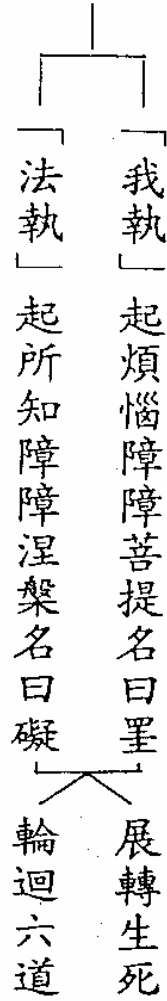 「我執」起煩惱障障菩提名曰罣
「法執」起所知障障涅槃名曰礙
展轉生死
輪迴六道